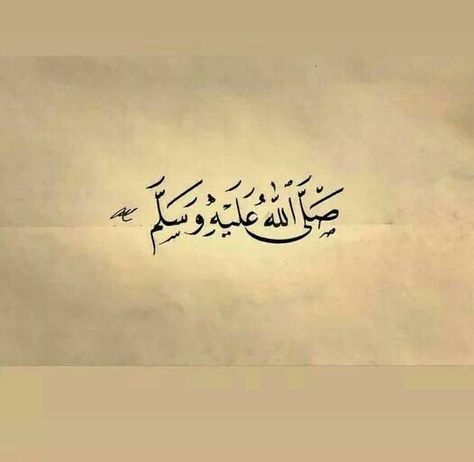 صَلَّى ٱللهُ عَلَيْهِ وَسَلَّمَ